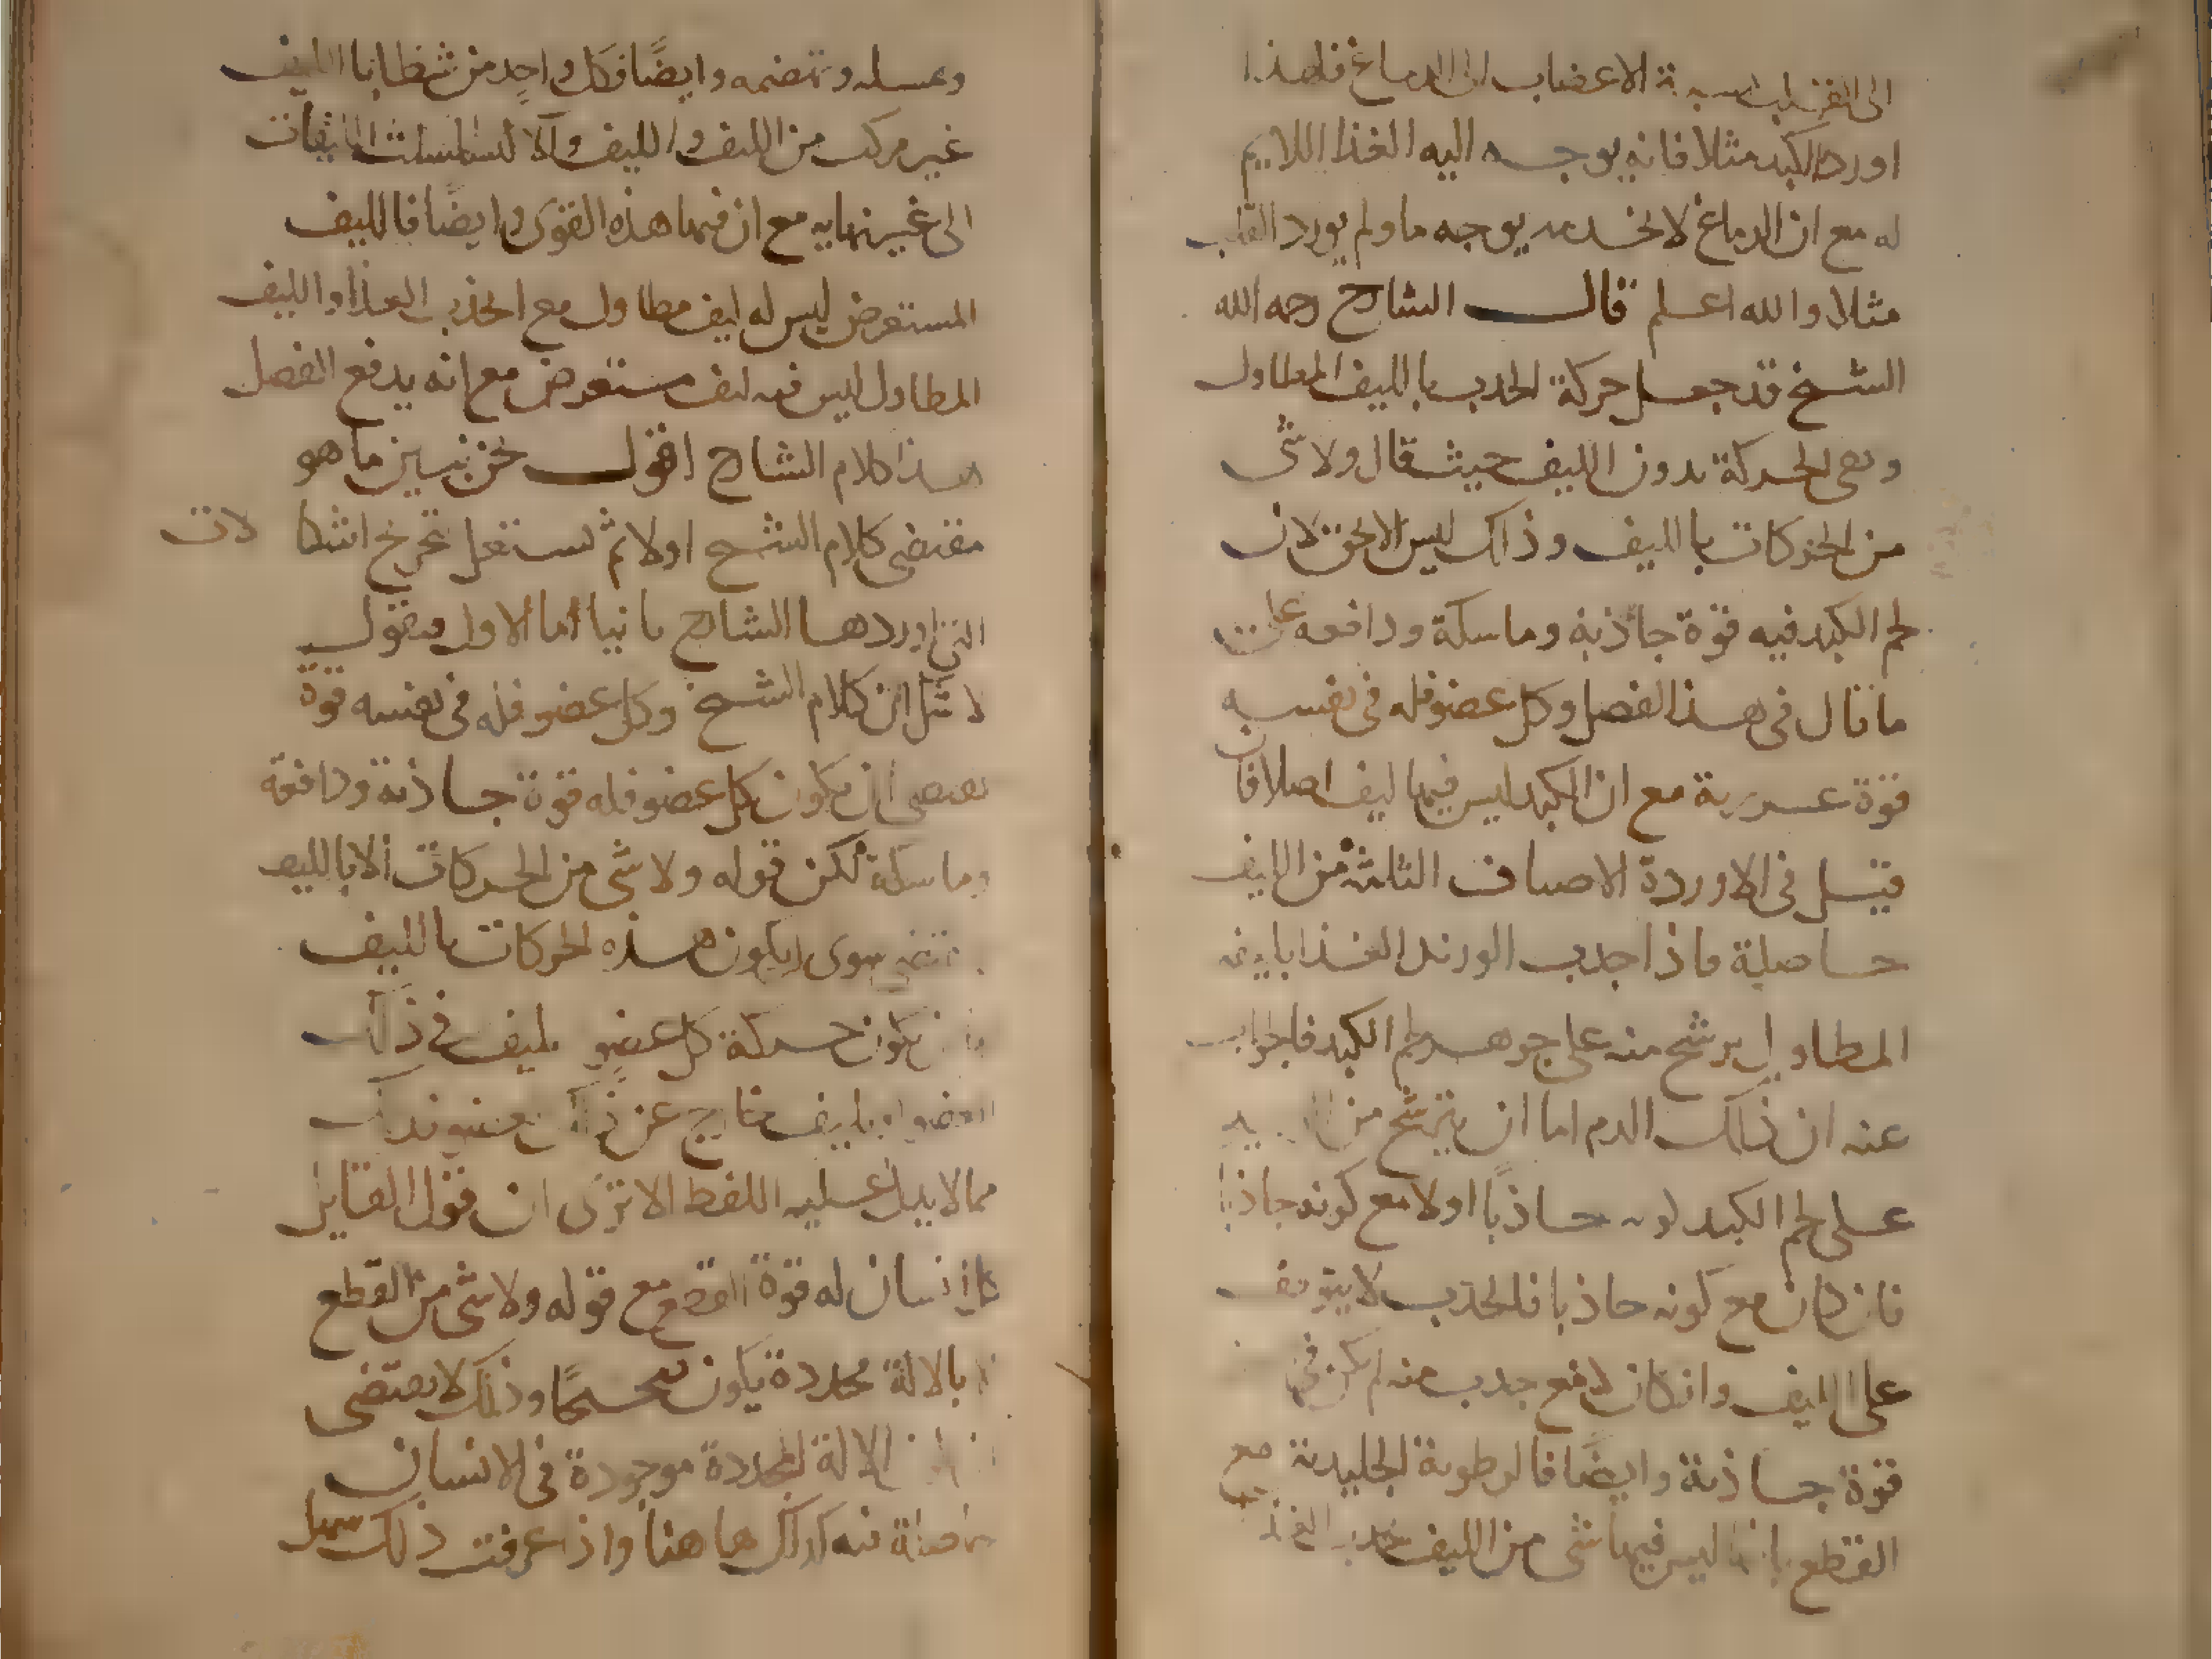 الى القلب نسبة الاعضاب الى الدماغ فلهذا
اورد الكبد مثلا فانه يوجه اليه الغذا اللايم
له مع ان الدماغ لا يوجه ما ولم يورد القلب
مثلا والله اعلم قال الشارح رحمه الله
الشيخ قد جعل حركة الجذب بالليف المطاول
ونفى الحركة بدون الليف حيث قال ولا شى
من الحركات بالليف وذلك ليس الا بحق لان
لحم الكبد فيه قوة جاذبة وماسكة ودافعه على
ما قال فى هذا الفصل وكل عضو فله فى نفسه
قوة مع ان الكبد ليس فيها ليف اصلا فان
قيل فى الاوردة الاصناف الثلثة من الليف
حاصلة فاذا جذب الوريد الغذا بليفه
المطاول يرشح منه على جوهر لحم الكبد فالجواب
عنه ان ذلك الدم اما ان يترشح من
على لحم الكبد جاذبا اولا مع كونه جاذبا
فان كان مع كونه جاذبا فالجذب لا يتوقف
على الليف وان كان لا مع جذب منه لم يكن فى
قوة جاذبة وايضا فالرطوبة الجليدية مع
القطع بانها ليس فيها شى من الليف تجذب الغذا
وتمسله وتهضمه وايضا فكل واحد من شظايا الليف
غير مركب من الليف والليف والا لتسلسلت
الى غير نهايه مع ان فيها هذه القوى وايضا فالليف
المستعرض ليس له ليف مطاول مع الجذب الغذا والليف
المطاول ليس فيه ليف مستعرض مع انه يدفع الفضل
هذا كلام الشارح اقول نحن نبين ما هو
مقتضى كلام الشيخ اولا ثم نستغل بتخريج اشكالات
التى اوردها الشارح ثانيا اما الاول فنقول
لا شك ان كلام الشيخ وكل عضو فله فى نفسه قوة
يقتضى ان يكون كل عضو فله قوة جاذبة ودافعة
وماسكة لكن قوله ولا شى من الحركات الا بالليف
يقتضى سوى ان يكون هذه الحركات بالليف
يكون حركة كل عضو بليف فى ذلك
العضو او بليف خارج عن ذلك
مما لا يدل عليه اللفظ الا ترى ان قول القايل
كل انسان له قوة القطع مع قوله ولا شى من القطع
الا بالالة محددة يكون صحيحا وذلك لا يقتضى
ان الالة المحددة موجودة فى الانسان
حاصلة فيه كذلك هاهنا واذ عرفت ذلك سهل